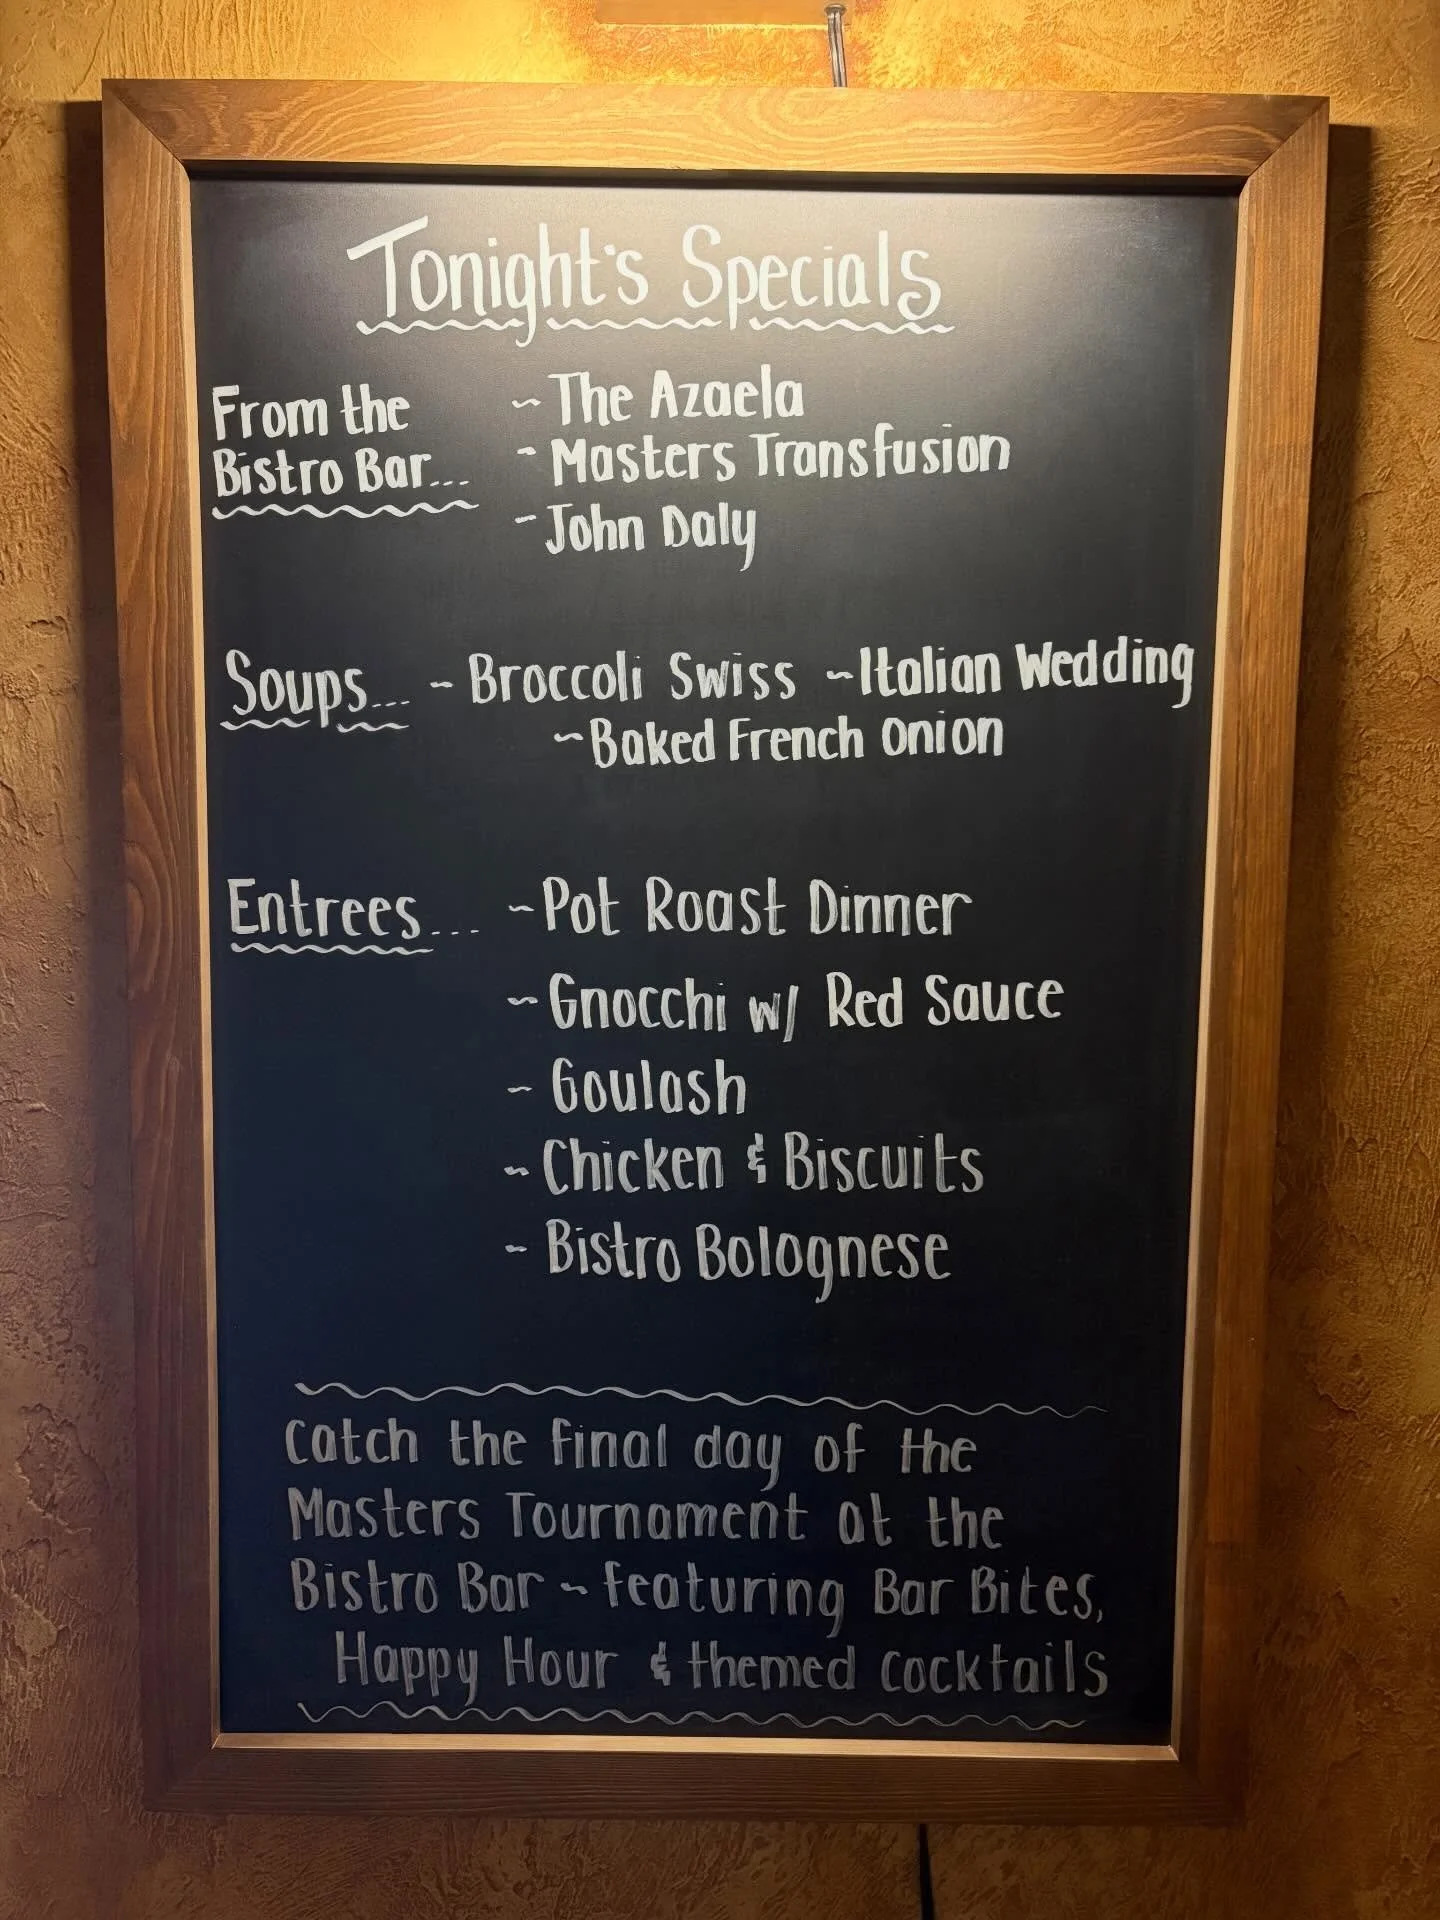 Tonight's Specials
From the
Bistro Bar...
~ The Azaela
~ Masters Transfusion
~ John Daly
Soups... ~ Broccoli Swiss ~ Italian Wedding
~ Baked French Onion
Entrees... ~ Pot Roast Dinner
~ Gnocchi w/ Red Sauce
~ Goulash
~ Chicken & Biscuits
~ Bistro Bolognese
Catch the final day of the
Masters Tournament at the
Bistro Bar ~ featuring Bar Bites,
Happy Hour & themed cocktails